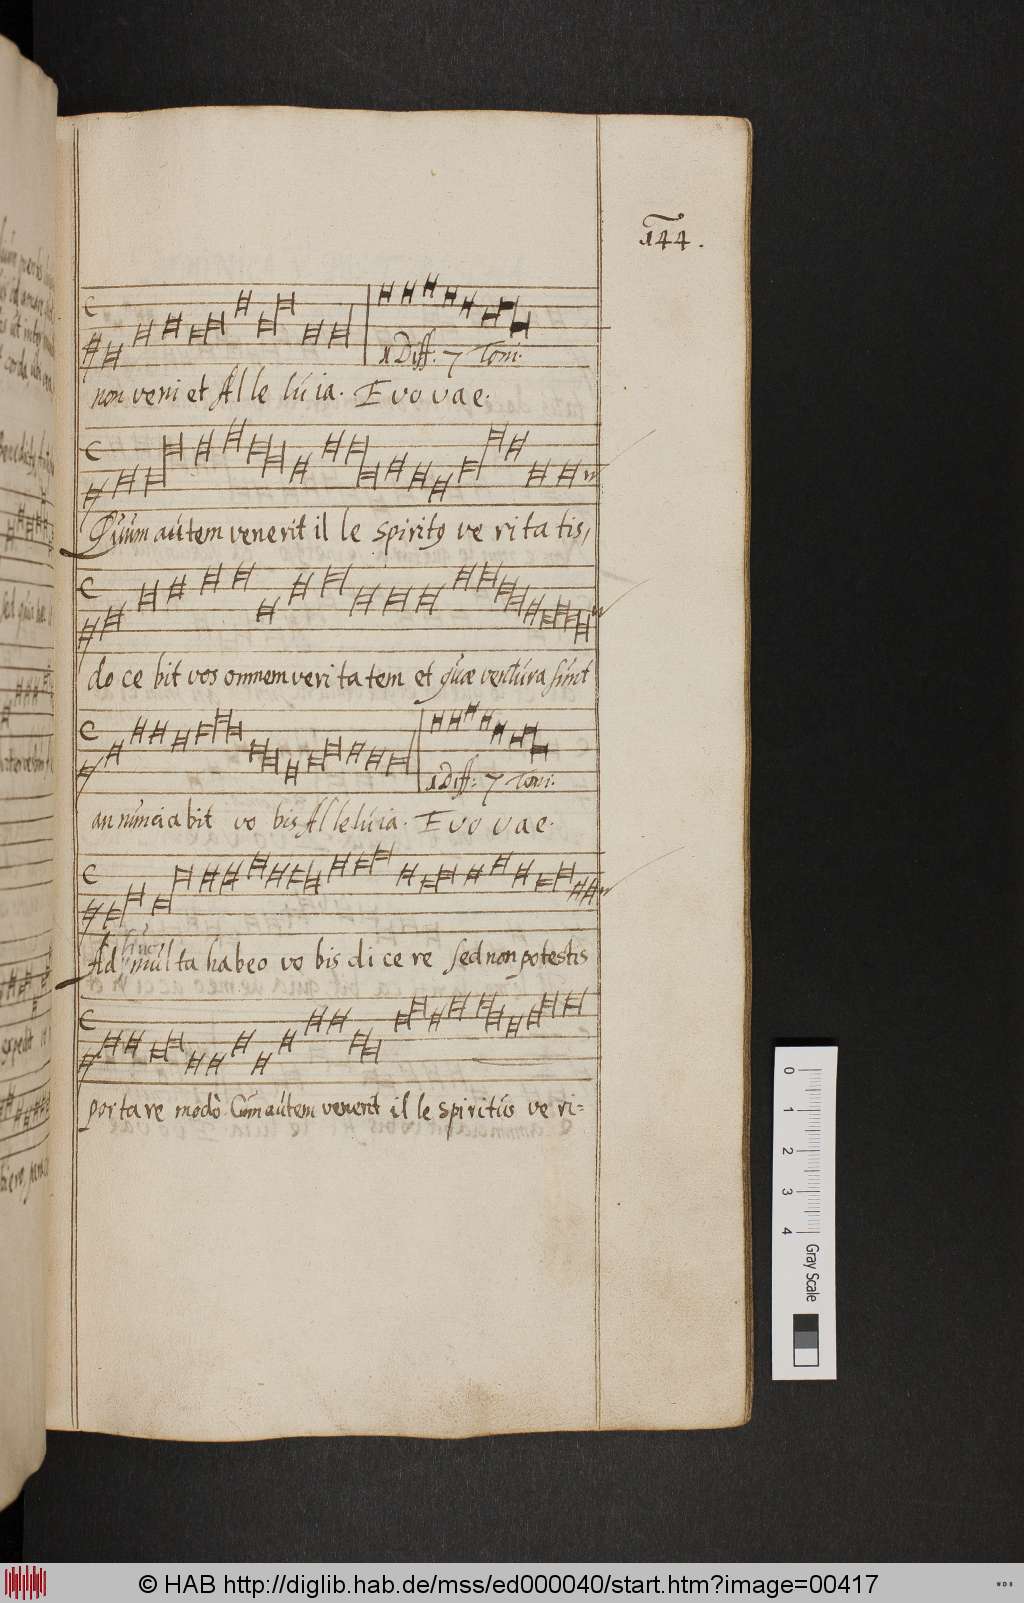 144.
1 Diff: 7 Toni.
non veni et Al le lu ia. E v o v a e.
Quum autem venerit il le spirit9 ve ri ta tis,
do ce bit vos omnem veri ta tem et quæ ventura sunt
1 Diff: 7 Toni.
an nuncia bit vo bis Al le lu ia. E v o v a e.
Ad huc mul ta habeo vo bis di ce re sed non potestis
por ta re modò Cum autem venerit il le spiritus ve ri=
0 1 2 3 4 Gray Scale
© HAB http://diglib.hab.de/mss/ed000040/start.htm?image=00417